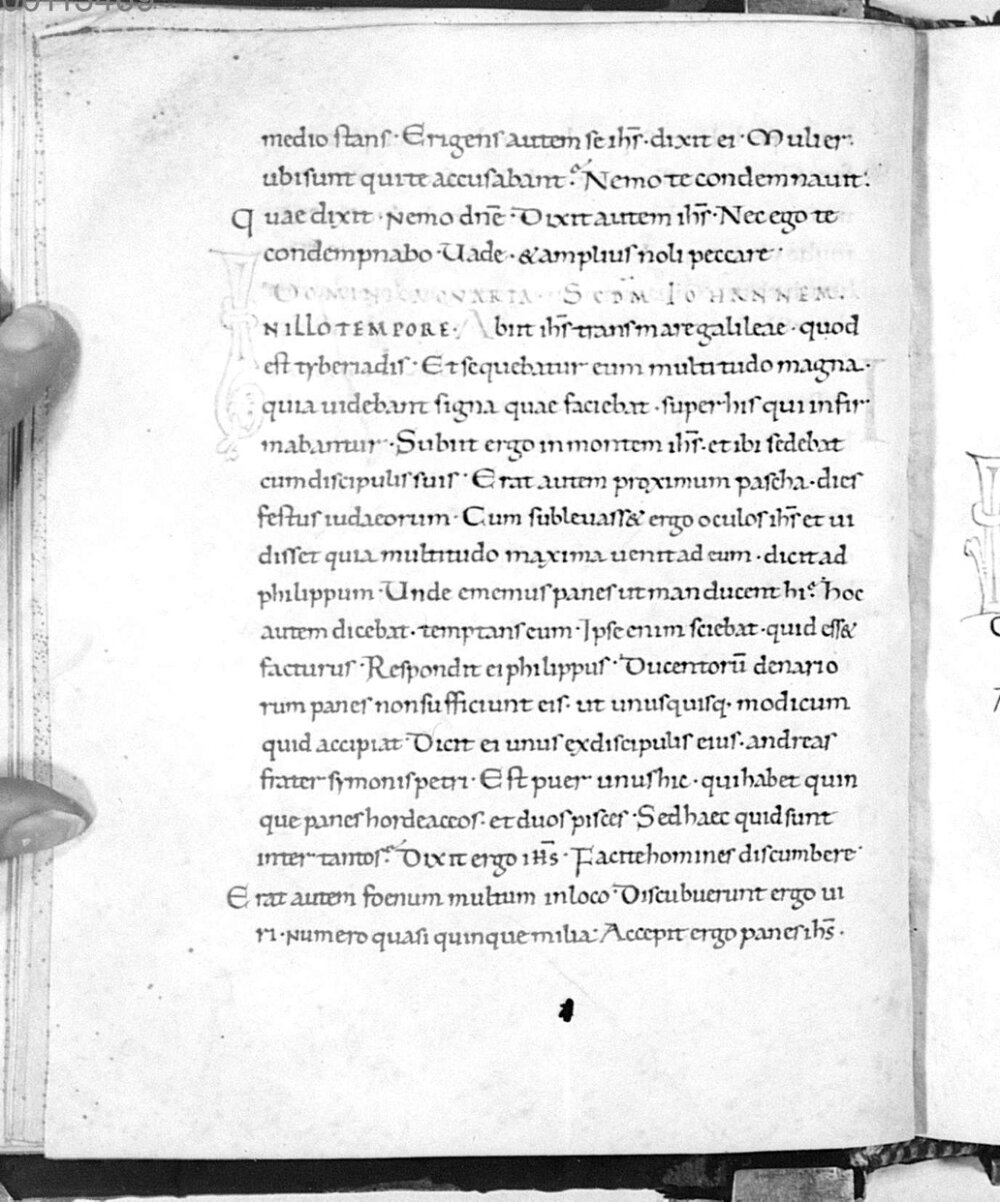 medio stans· Erigens autem se ihs̄· dixit ei· Mulier·
ubi sunt qui te accusabant? Nemo te condemnauit?
Quae dixit· Nemo dn̄e· Dixit autem ihs̄· Nec ego te
condempnabo· Uade· & amplius noli peccare·
DOMINICA QVARTA· SCD̄M IOHANNEM·
IN ILLO TEMPORE· Abiit ihs̄ trans mare galileae· quod
est tyberiadis· Et sequebatur eum multitudo magna·
quia uidebant signa quae faciebat· super his qui infir
mabantur· Subiit ergo in montem ihs̄· et ibi sedebat
cum discipulis suis· Erat autem proximum pascha· dies
festus iudaeorum· Cum subleuass& ergo oculos ihs̄ et ui
disset quia multitudo maxima uenit ad eum· dicit ad
philippum· Unde ememus panes ut manducent hi? hoc
autem dicebat· temptans eum· Ipse enim sciebat· quid ess&
facturus· Respondit ei philippus· Ducentorū denario
rum panes non sufficiunt eis· ut unusquisq· modicum
quid accipiat· Dicit ei unus ex discipulis eius· andreas
frater symonis petri· Est puer unus hic· qui habet quin
que panes hordeaceos· et duos pisces· Sed haec quid sunt
inter tantos? Dixit ergo iHs̄· Facite homines discumbere·
Erat autem foenum multum in loco· Discubuerunt ergo ui
ri· numero quasi quinque milia· Accepit ergo panes ihs̄·